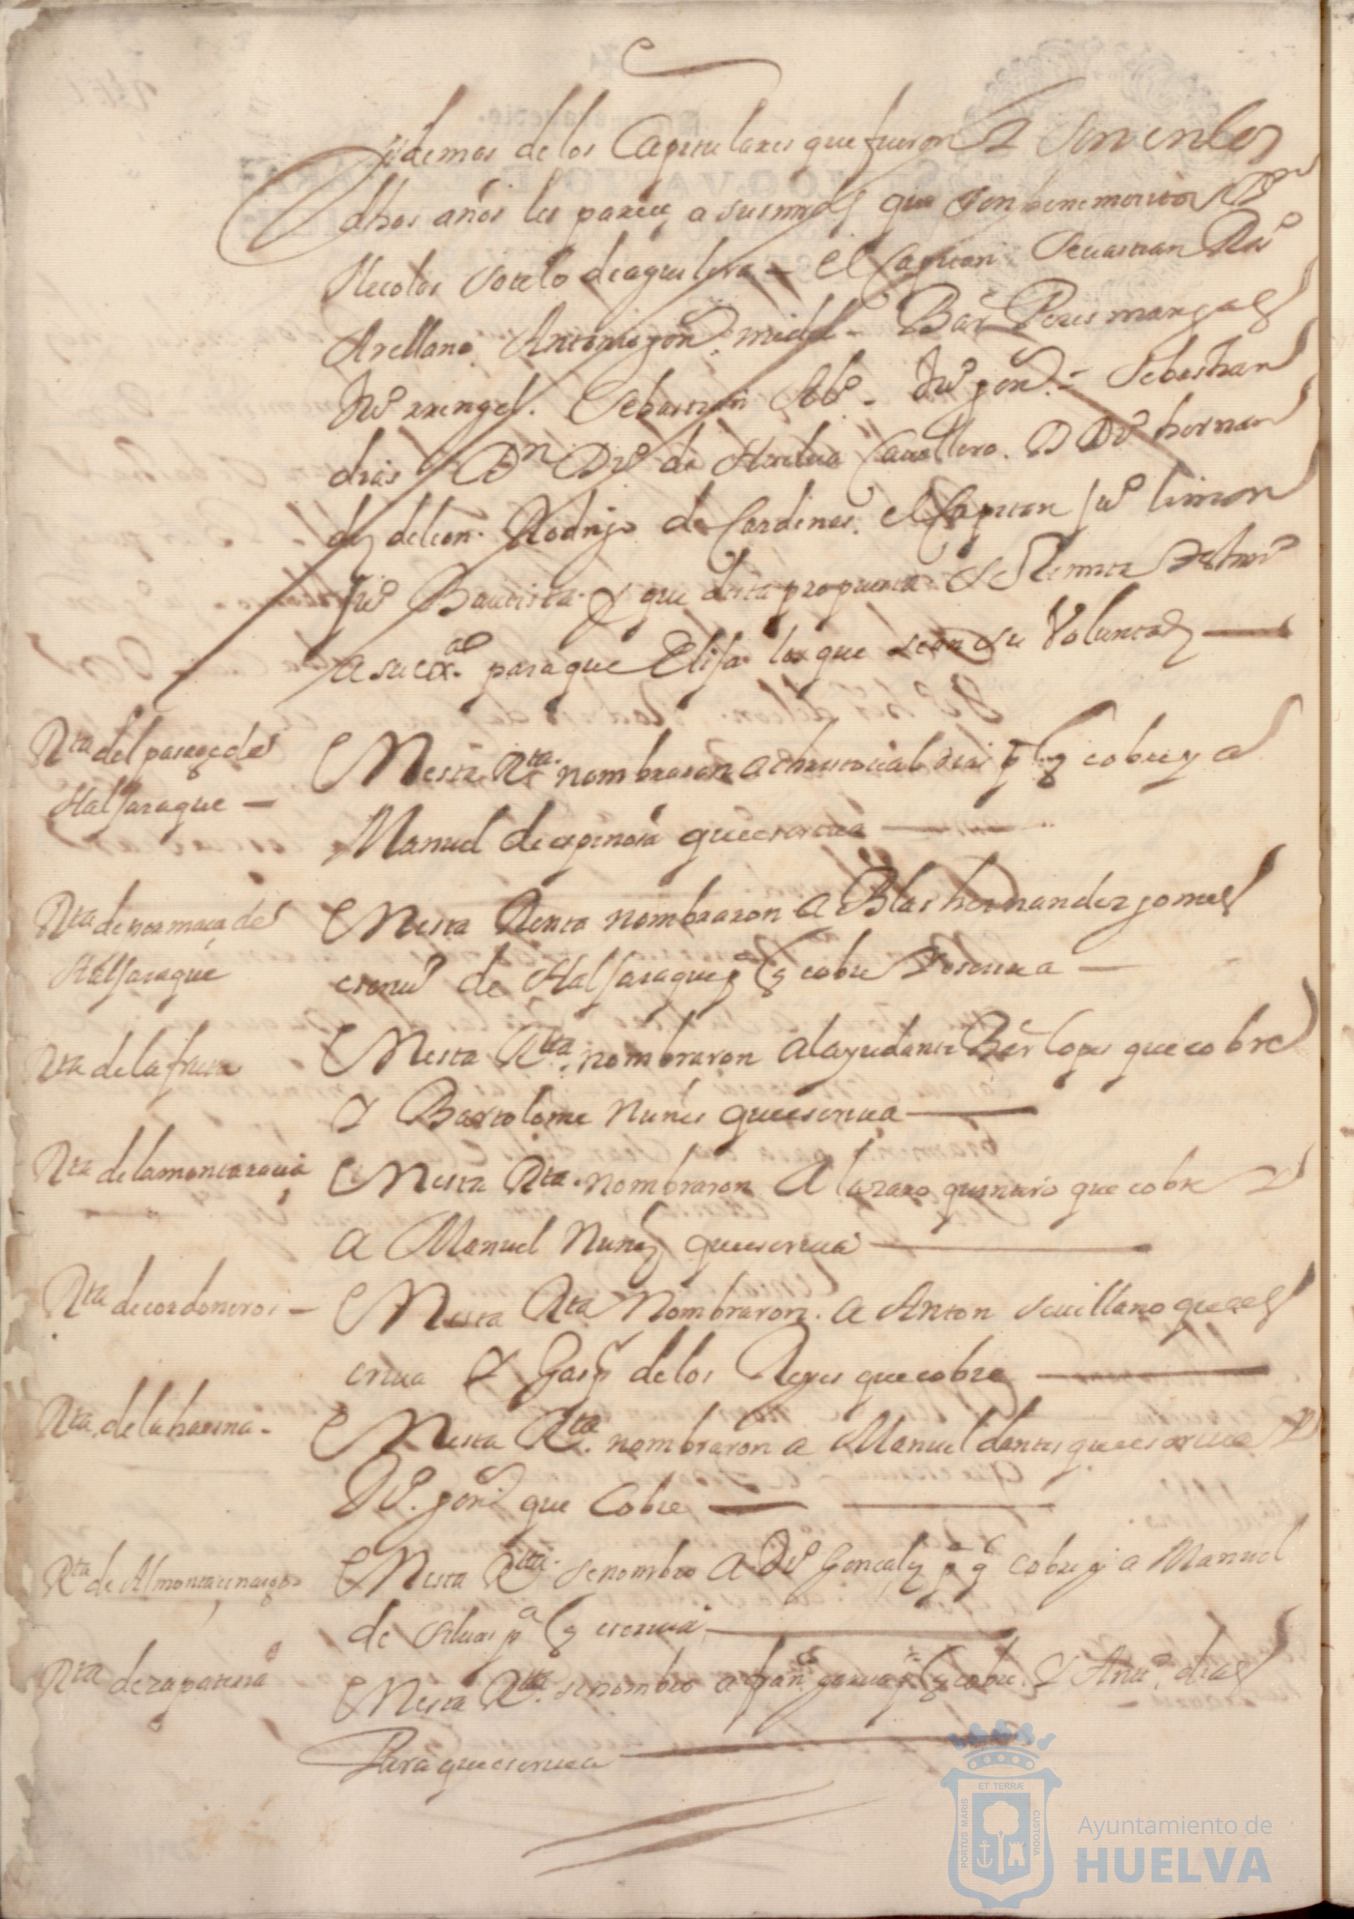 y demas de los Capitulares que fueron & son en los
dhos años les parece a sus mrds que son benemeritos Dn
Nicolas Sotelo de aguilera – el Capitan Sevastian Rº
Arellano. Antonio gonz. midel – Bar Peres marques
Juº rrengel. Sebastian Abº – Juº gonz. – Sebastian
dias Dn Dº de Heredia Cavallero. D Dº hernan
des de leon. Rodrigo de Cardenas. el Capitan Juº limon
Juº Bautista. y que desta propuesta se Remita
a su exª. para que Elija los que sean su Voluntad
Rta del pasage del
Haljaraque –
En esta Rta. nombraron a christoval dias pª q cobre y a
Manuel de espinosa que escriva
Rta de por maca del
Haljaraque
En esta Renta nombraron a Blas hernandez gomes
de Haljaraque pª q cobre y escriva –
Rta de la fruta
En esta Rta. nombraron al ayudante Bar lopes que cobre
y Bartolome Nuñes que escriva
Rta de la montaracia
En esta Rta. nombraron A lazaro quintero que cobre y
a Manuel Nuñez que escriva
Rta de cordoneros –
En esta Rta Nombraron. a Anton sevillano que es
criva y Gasp de los Reyes que cobre
Rta. de la harina –
En esta Rta. nombraron a Manuel dantes que escriva y
Dº. gonz que Cobre
Rta de Almotacenazgo
En esta Rta. se nombro a Dº Goncales pª q cobre y a Manuel
de silva pª q escriva
Rta de zapateria
En esta Rta. se nombro a franco garcia pª q cobre. y Antº. dias
Para que escriva
PORTUS MARIS ET TERRÆ CUSTODIA
Ayuntamiento de
HUELVA